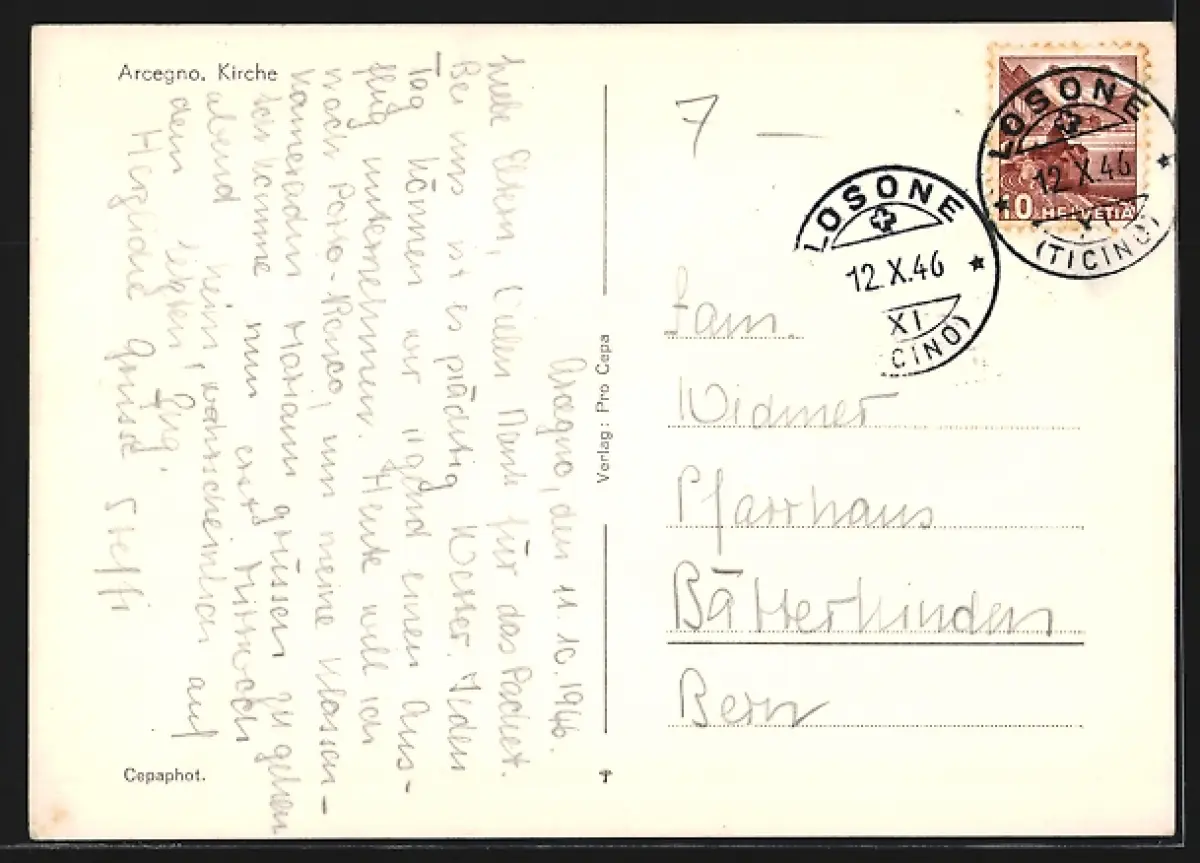 Arcegno. Kirche
Arcegno, den 11. 10. 1946.
Liebe Eltern, Vielen Dank für das Packet.
Bei uns ist es prächtig Wetter. Jeden
Tag können wir gend einen Aus-
flug unternehmen. Heute will ich
nach Porto-Ronco, um meine Klassen-
kameradin Mariann grüssen zu gehen
Ich komme nun erst Mittwoch
abend heim, wahrscheinlich auf
dem Zug.
Herzliche Grüsse Steffi
Cepaphot.
Verlag: Pro Cepa
7 —
LOSONE
12.X.46
XI
(TICINO)
LOSONE
12.X.46
XI
(TICINO)
10 HELVETIA
Fam.
Widmer
Pfarrhaus
Bätterkinden
Bern